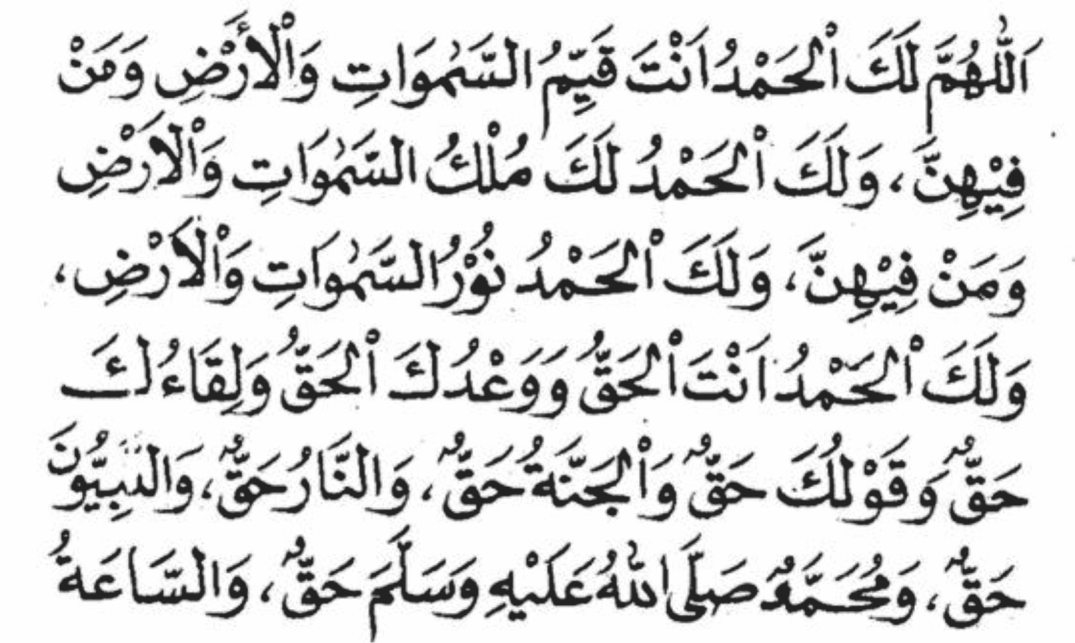 اَللّٰهُمَّ لَكَ اْلحَمْدُ اَنْتَ قَيِّمُ السَّمٰوَاتِ وَاْلأَرْضِ وَمَنْ
فِيْهِنَّ، وَلَكَ اْلحَمْدُ لَكَ مُلْكُ السَّمٰوَاتِ وَاْلاَرْضِ
وَمَنْ فِيْهِنَّ، وَلَكَ اْلحَمْدُ نُوْرُ السَّمٰوَاتِ وَاْلاَرْضِ،
وَلَكَ اْلحَمْدُ اَنْتَ اْلحَقُّ وَوَعْدُكَ اْلحَقُّ وَلِقَاءُكَ
حَقٌّ وَقَوْلُكَ حَقٌّ وَاْلجَنَّةُ حَقٌّ، وَالنَّارُ حَقٌّ، وَالنَّبِيُّوْنَ
حَقٌّ، وَمُحَمَّدٌ صَلَّى اللّٰهُ عَلَيْهِ وَسَلَّمَ حَقٌّ، وَالسَّاعَةُ